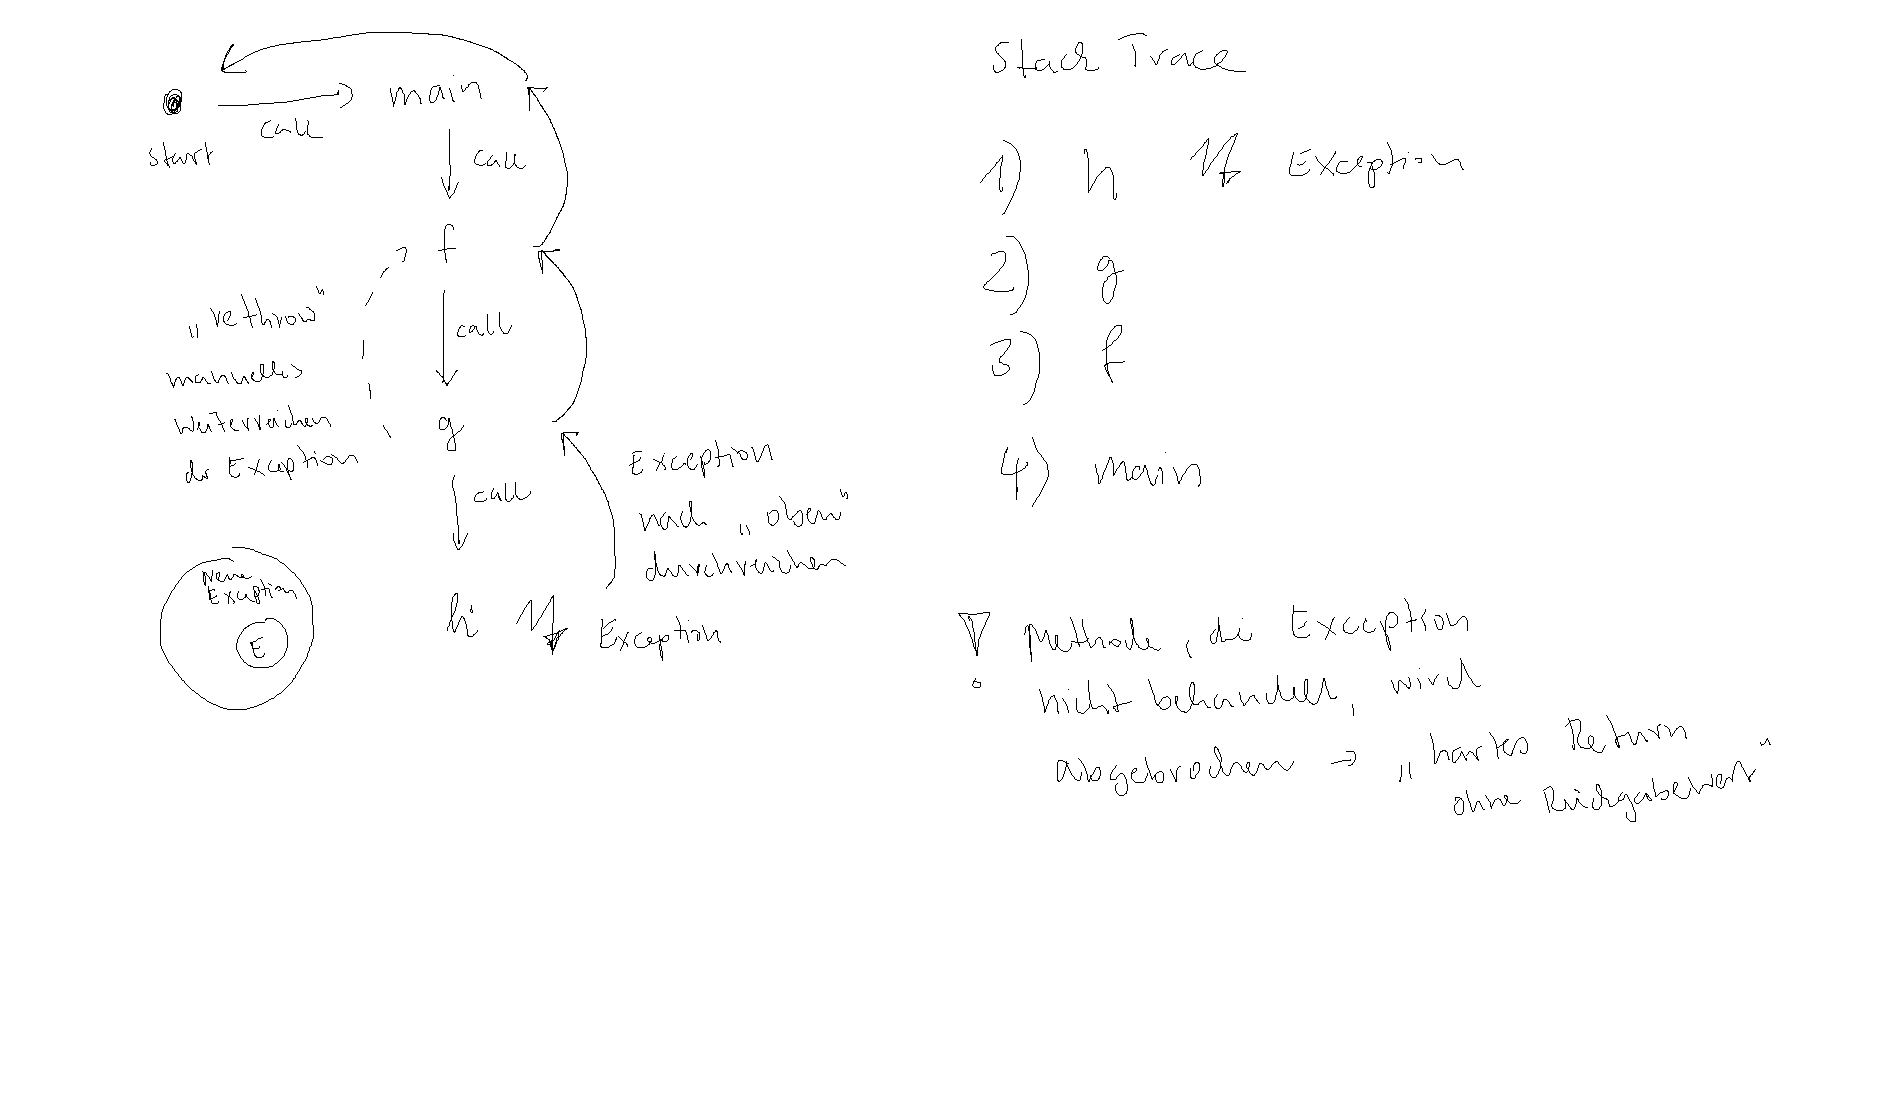 start
call
main
call
f
„rethrow"
manuelles
Weiterreichen
der Exception
call
g
call
Exception
nach „oben"
durchreichen
h
Exception
Neue
Exception
E
Stack Trace
1) h Exception
2) g
3) f
4) main
! Methode, die Exception
nicht behandelt, wird
abgebrochen → „hartes Return
ohne Rückgabewert"